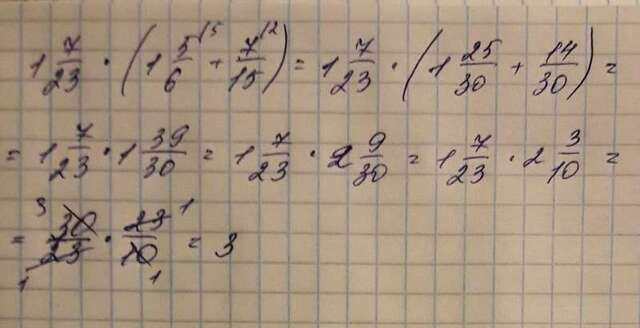 1 7/23 · (1 5/6 ⁽⁵ + 7/15 ⁽²) = 1 7/23 · (1 25/30 + 14/30) =
= 1 7/23 · 1 39/30 = 1 7/23 · 2 9/30 = 1 7/23 · 2 3/10 =
= ³30/23₁ · 23¹/10₁ = 3